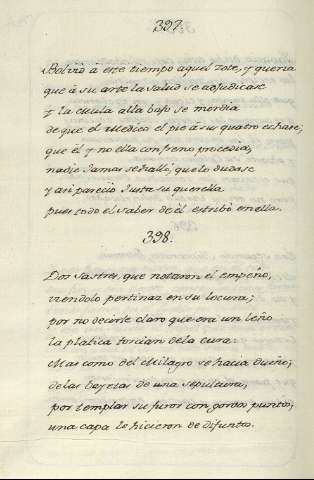 397.
Bolvió á este tiempo aquel zote, y queria
que á su arte la salud se adjudicase
y la mula alla bajo se mordia
de que el Medico el pie á su quatro echase;
que él y no ella con freno procedia,
nadie jamas se halló, que lo dudase
y asi pareció justa su querella
pues todo el saber de él estribó en ella.
398.
Dos sastres, que notaron el empeño,
viendolo pertinaz en su locura;
por no decirle claro que era un leño
la platica torcian de la cura:
Mas como del Milagro se hacia dueño;
de las bayetas de una sepultura,
por templar su furor con gordos puntos,
una capa le hicieron de difuntos.